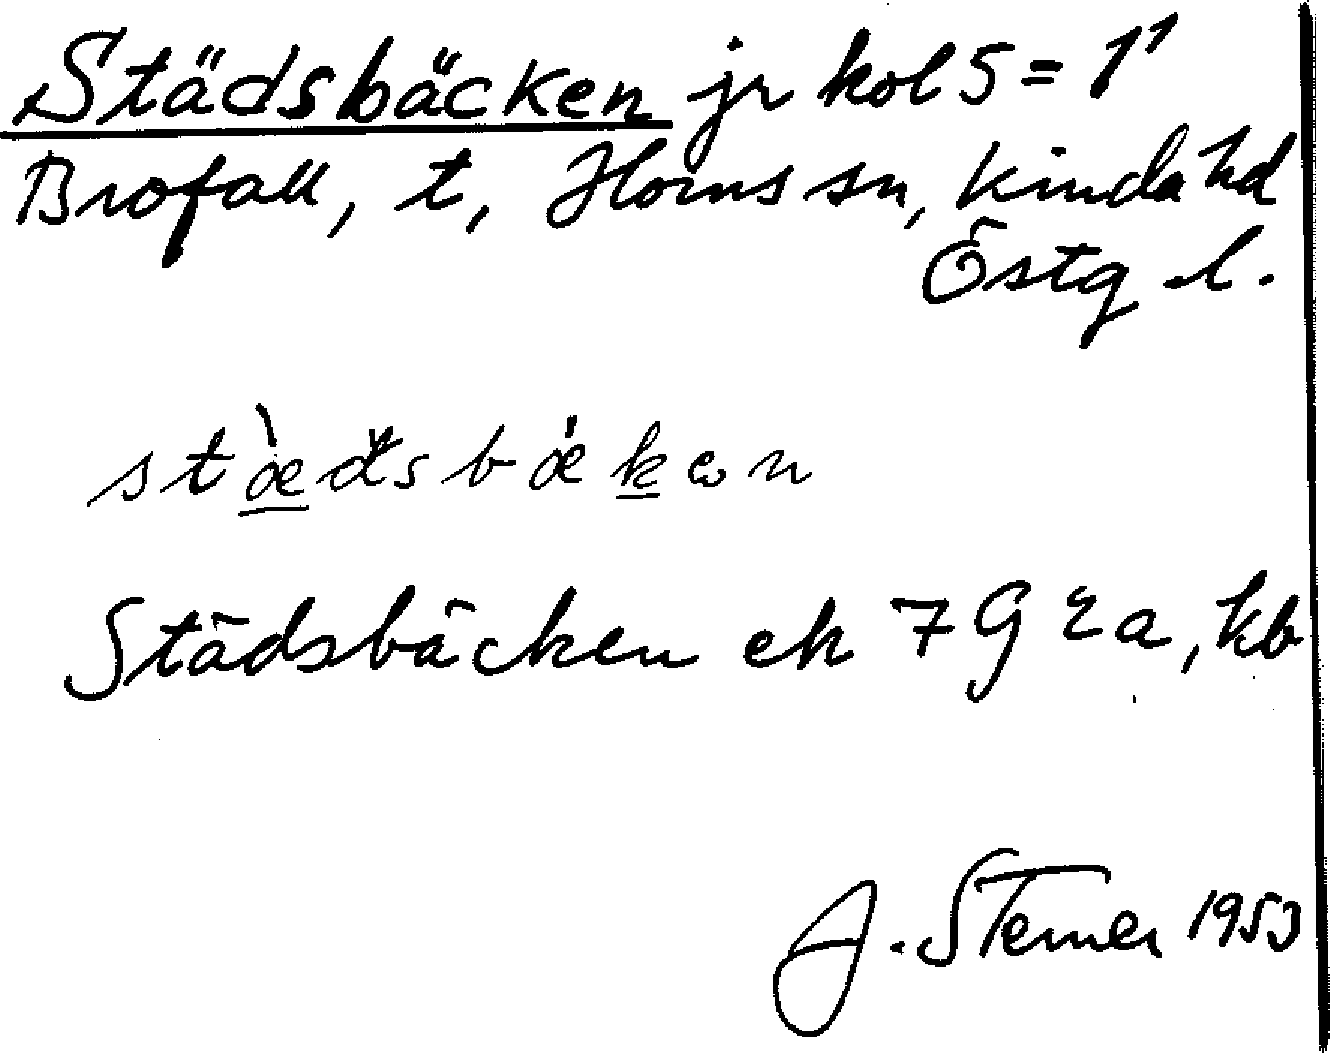 Städsbäcken jr kol 5 = 1'
Brofall, t, Horns sn, Kinda hd
Östg l.
stæ̀dsbǽkən
Städsbäcken ek 7 G 2 a, kb
J. Sterner 1953